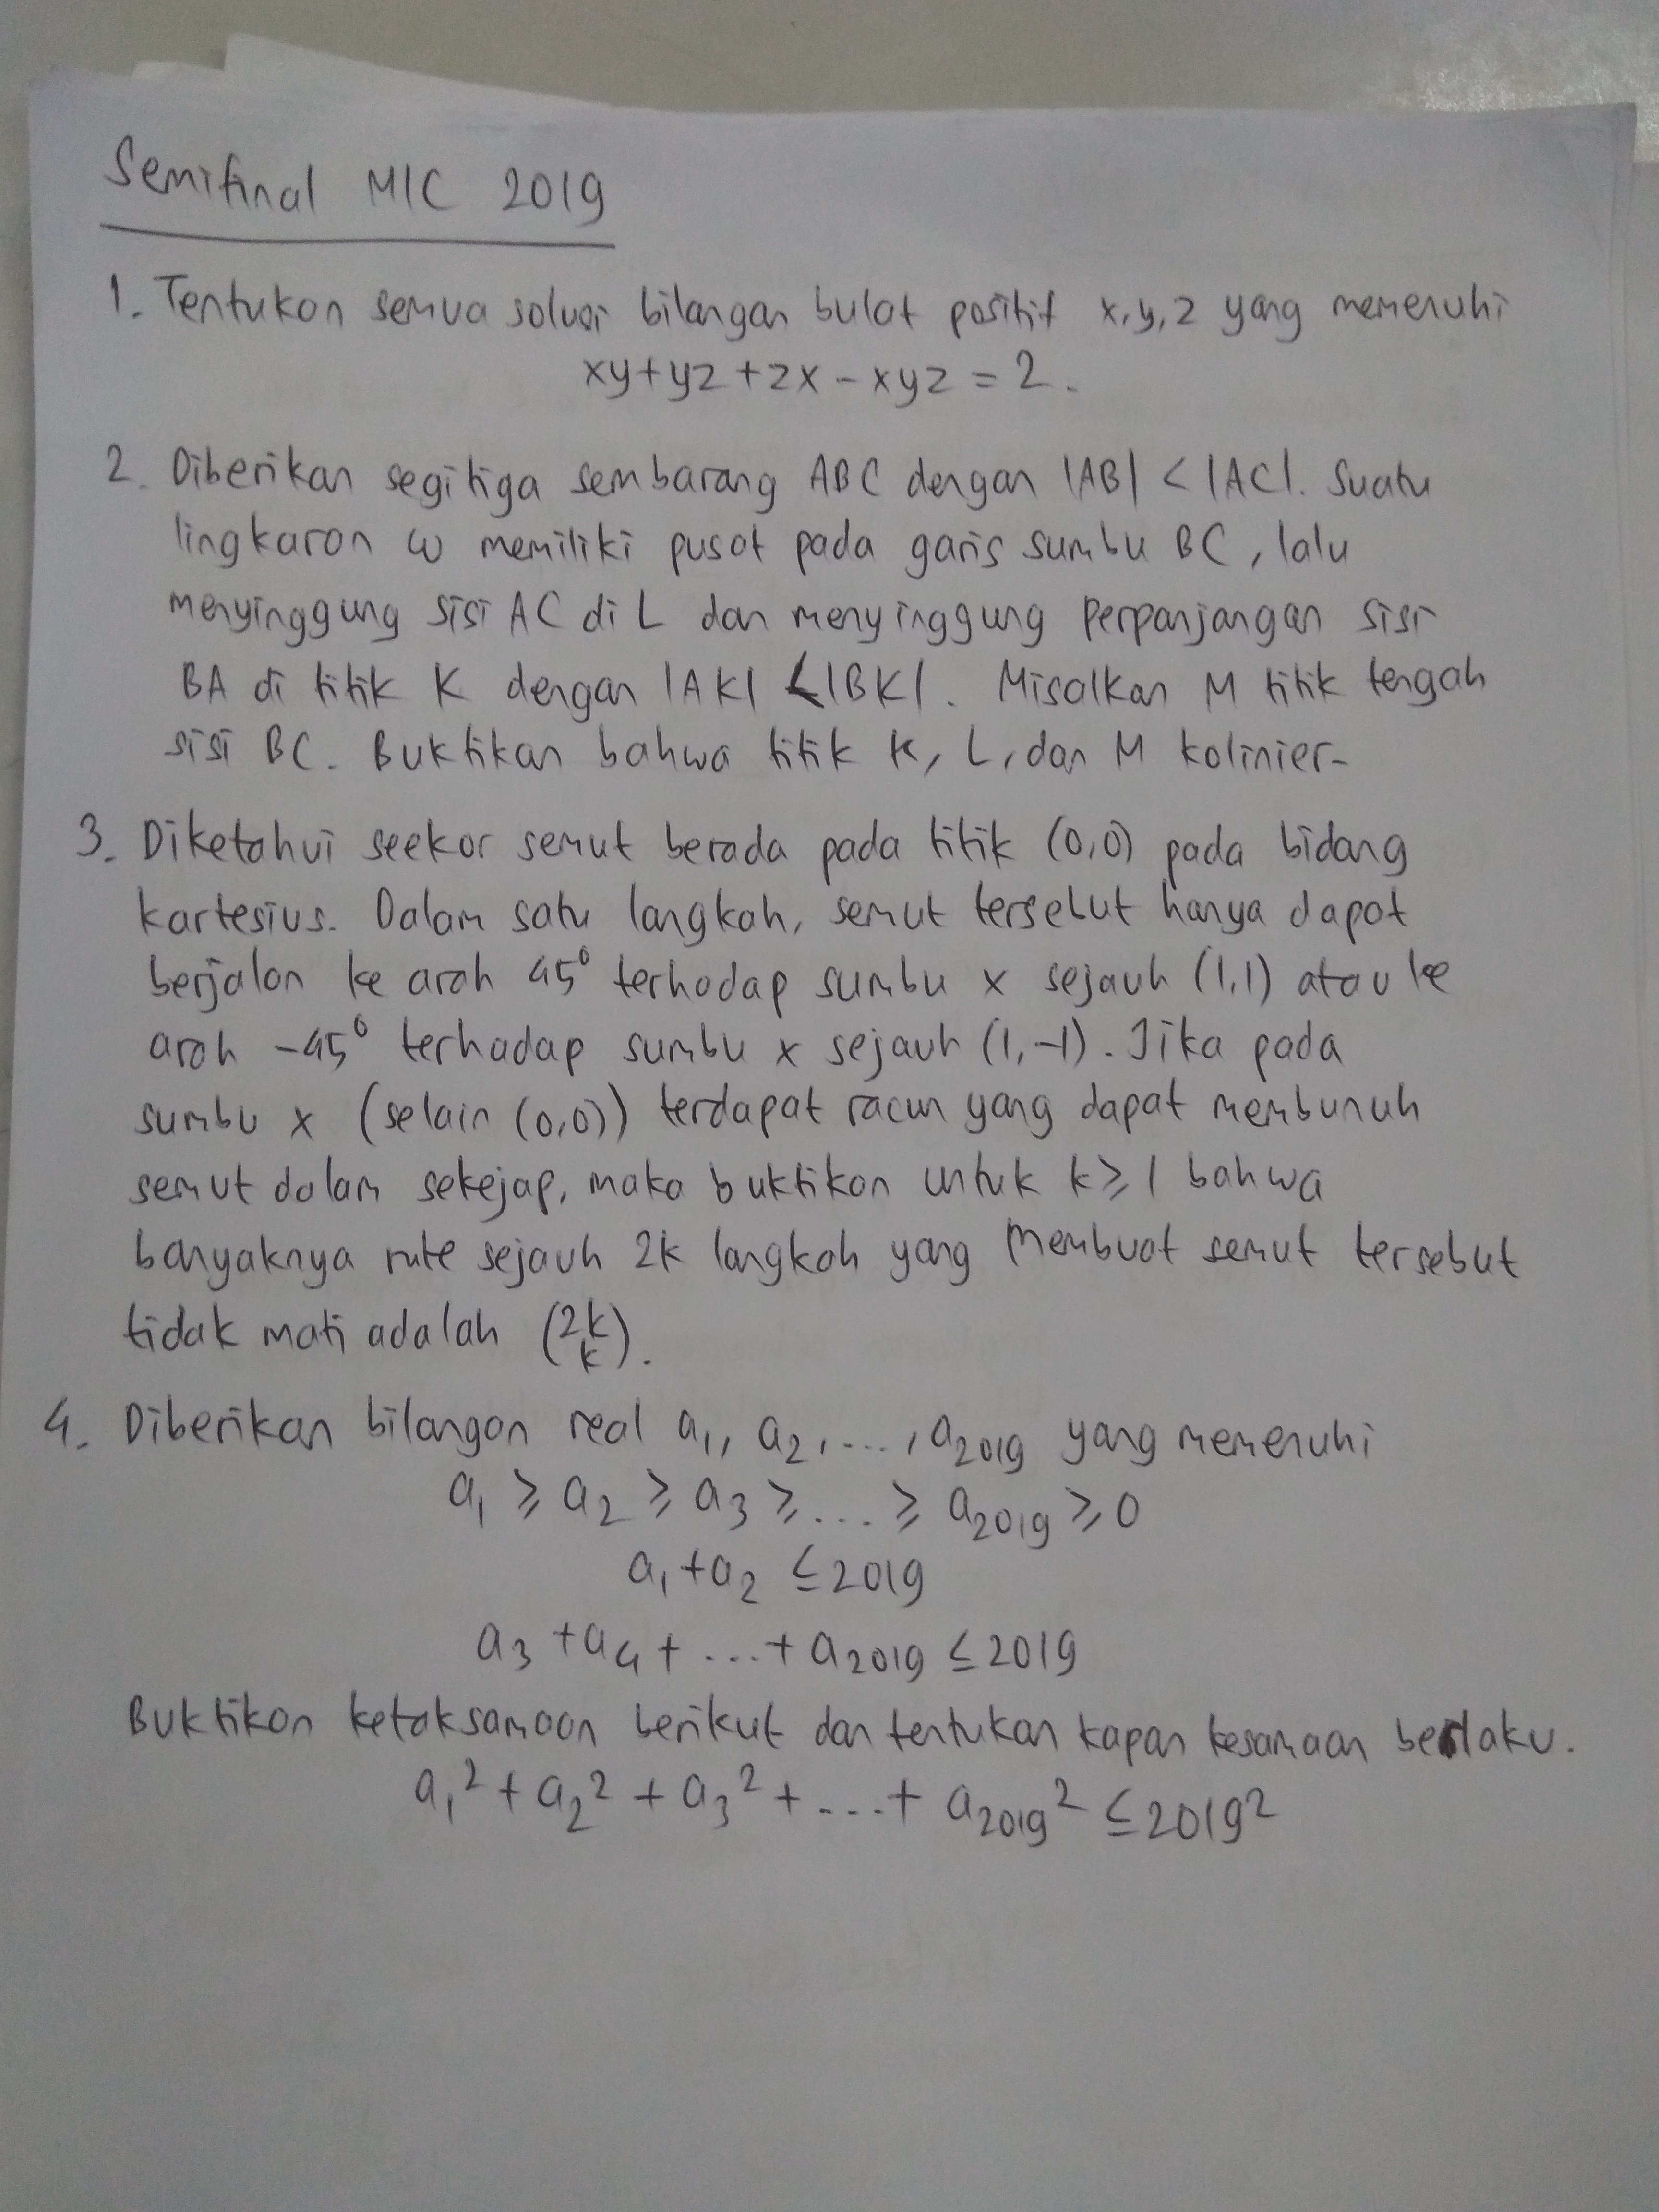 Semifinal MIC 2019
1. Tentukan semua solusi bilangan bulat positif x,y,z yang memenuhi
xy+yz+zx-xyz=2.
2. Diberikan segitiga sembarang ABC dengan |AB| < |AC|. Suatu
lingkaran ω memiliki pusat pada garis sumbu BC, lalu
menyinggung sisi AC di L dan menyinggung perpanjangan sisi
BA di titik K dengan |AK| < |BK|. Misalkan M titik tengah
sisi BC. Buktikan bahwa titik K, L, dan M kolinier.
3. Diketahui seekor semut berada pada titik (0,0) pada bidang
kartesius. Dalam satu langkah, semut tersebut hanya dapat
berjalan ke arah 45° terhadap sumbu x sejauh (1,1) atau ke
arah -45° terhadap sumbu x sejauh (1,-1). Jika pada
sumbu x (selain (0,0)) terdapat racun yang dapat membunuh
semut dalam sekejap, maka buktikan untuk k≥1 bahwa
banyaknya rute sejauh 2k langkah yang membuat semut tersebut
tidak mati adalah (2k k).
4. Diberikan bilangan real a₁, a₂, ..., a₂₀₁₉ yang memenuhi
a₁ ≥ a₂ ≥ a₃ ≥ ... ≥ a₂₀₁₉ ≥ 0
a₁+a₂ ≤ 2019
a₃+a₄+...+a₂₀₁₉ ≤ 2019
Buktikan ketaksamaan berikut dan tentukan kapan kesamaan berlaku.
a₁²+a₂²+a₃²+...+a₂₀₁₉² ≤ 2019²